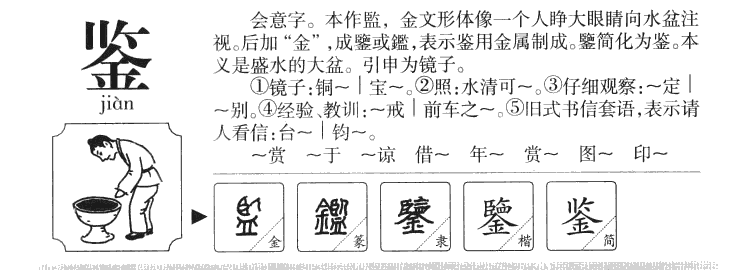 鉴
jiàn
会意字。本作監，金文形体像一个人睁大眼睛向水盆注
视。后加“金”，成鑒或鑑，表示鉴用金属制成。鑒简化为鉴。本
义是盛水的大盆。引申为镜子。
①镜子：铜～｜宝～。②照：水清可～。③仔细观察：～定｜
～别。④经验、教训：～戒｜前车之～。⑤旧式书信套语，表示请
人看信：台～｜钧～。
～赏 ～于 ～谅 借～ 年～ 赏～ 图～ 印～
監 金
鑑 篆
鑒 隶
鑒 楷
鉴 简